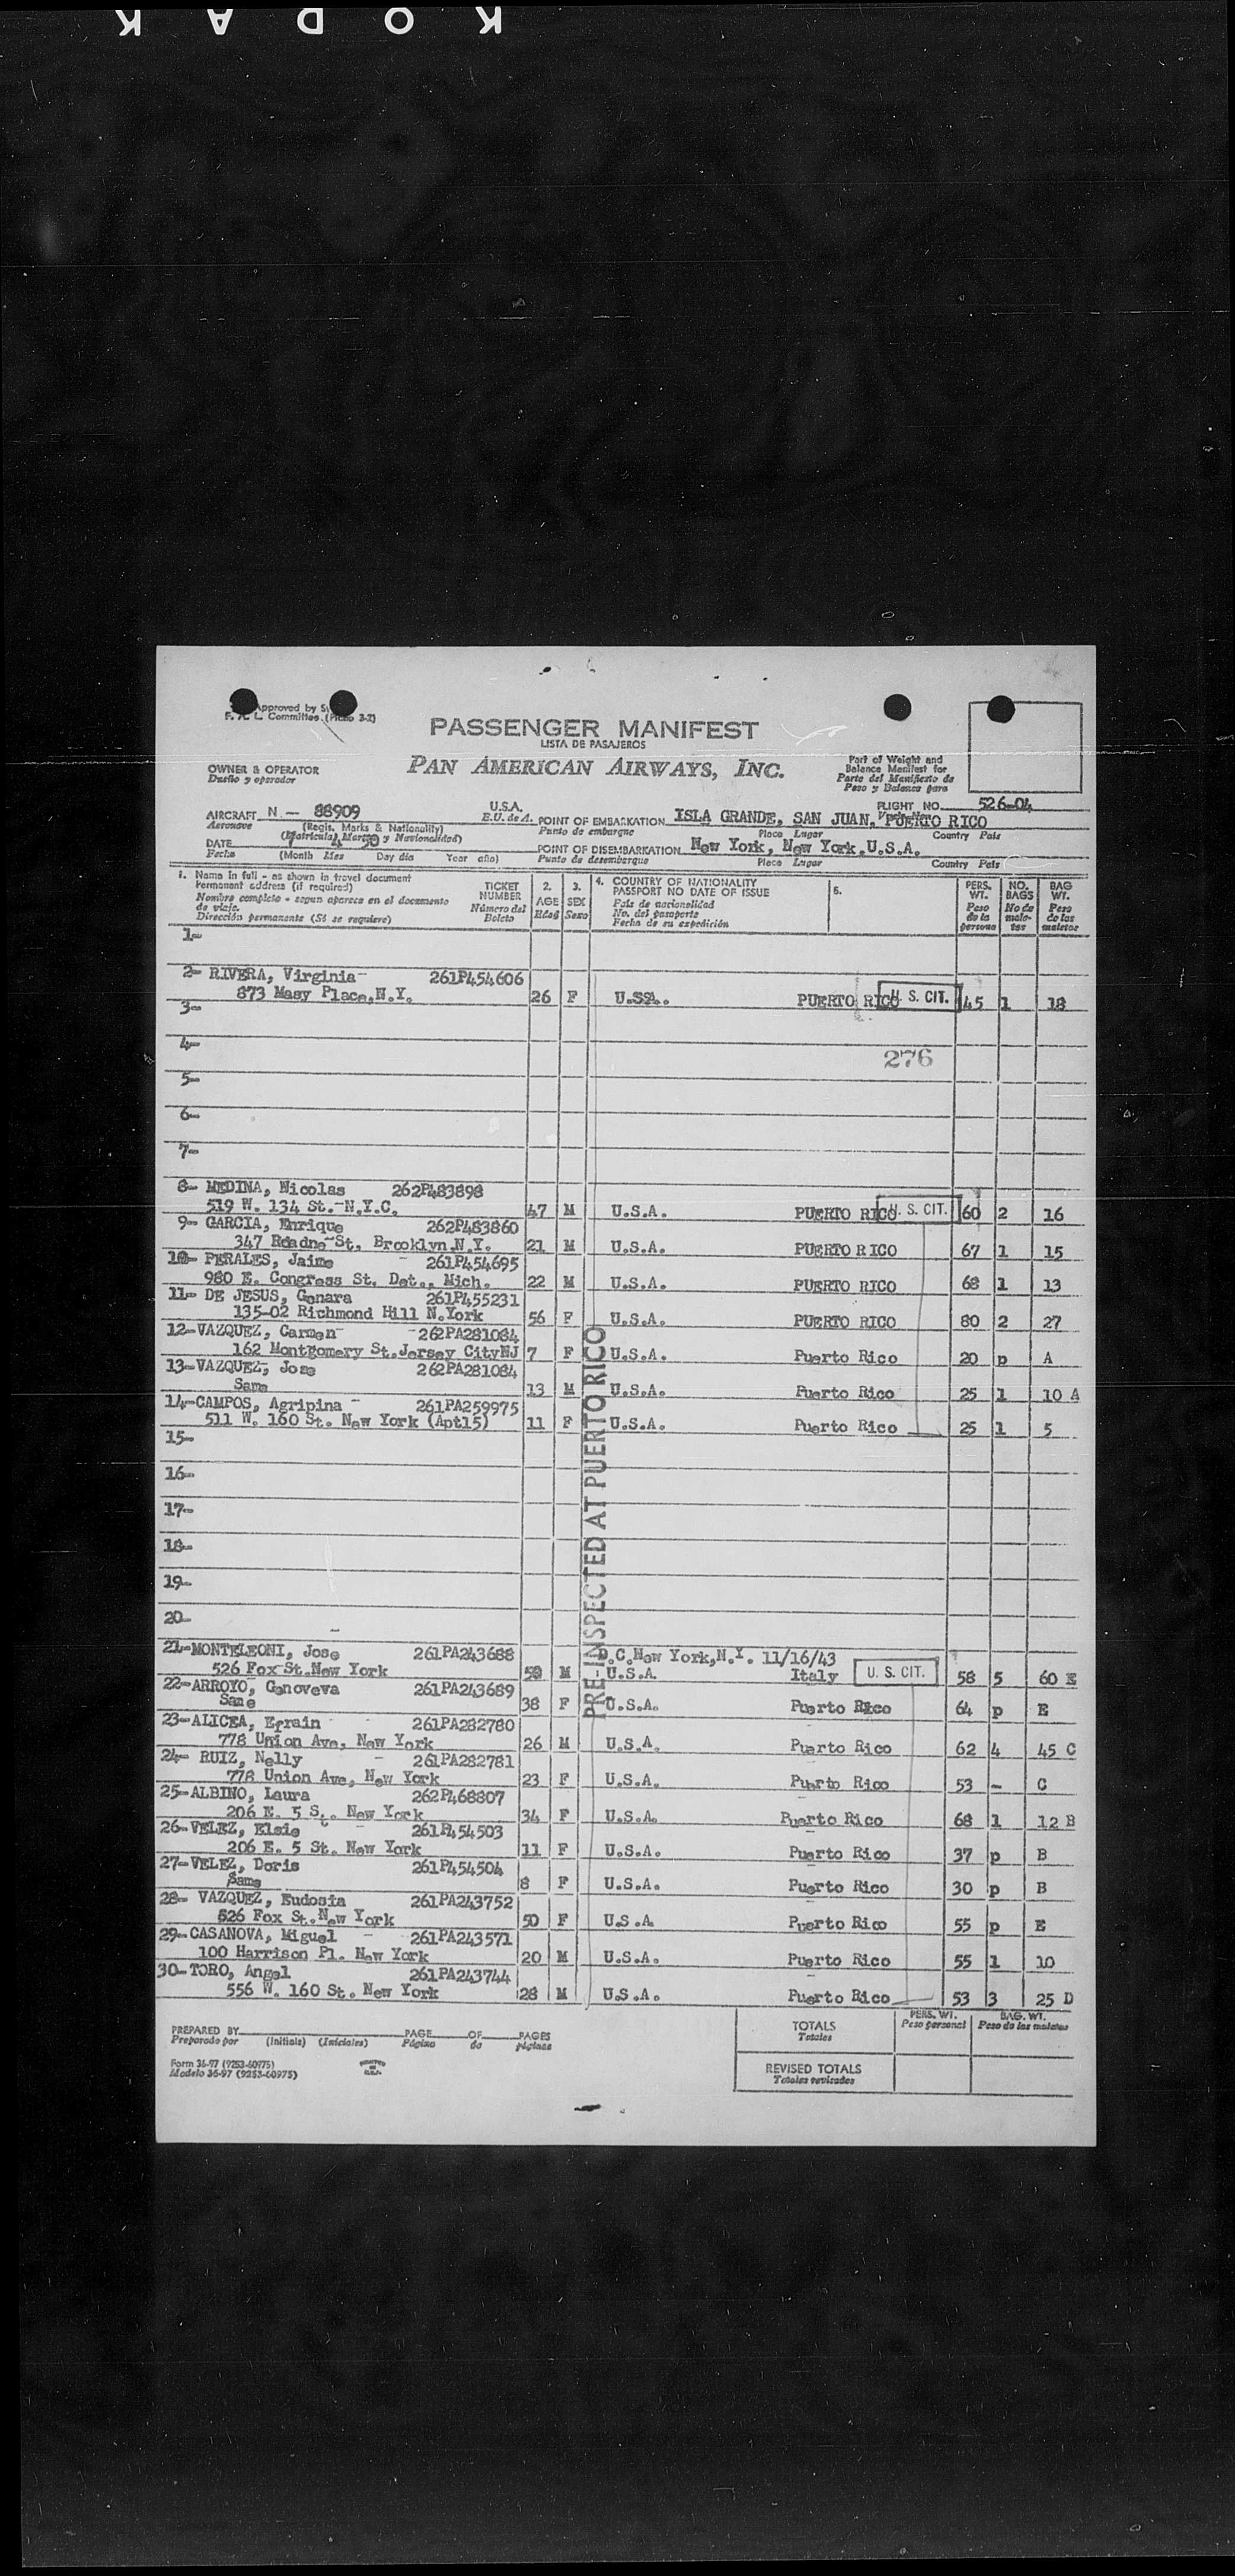 KODAK
Approved by
F. A. L. Committee. (Picao 3-2)
PASSENGER MANIFEST
LISTA DE PASAJEROS
PAN AMERICAN AIRWAYS, INC.
OWNER & OPERATOR
Dueño y operador
Part of Weight and
Balance Manifest for
Parte del Manifiesto de
Peso y Balance para
FLIGHT NO. 526-04
AIRCRAFT N - 88909 U.S.A. POINT OF EMBARKATION ISLA GRANDE, SAN JUAN, PUERTO RICO
Aeronave (Regis. Marks & Nationality) E.U. de A. Punto de embarque Place Lugar Country Pais
(Matricula, Marcas y Nacionalidad)
DATE 7 4 50 POINT OF DISEMBARKATION New York, New York.U.S.A.
Fecha (Month Mes Day dia Year año) Punto de desembarque Place Lugar Country Pais
1. Name in full - as shown in travel document
Permanent address (if required)
Nombre completo - segun aparece en el documento
de viaje.
Dirección permanente (Si se requiere)
TICKET
NUMBER
Número del
Boleto
2.
AGE
Edad
3.
SEX
Sexo
4. COUNTRY OF NATIONALITY
PASSPORT NO DATE OF ISSUE
Pais de nacionalidad
No. del pasaporte
Fecha de su expedición
5.
PERS.
WT.
Peso
de la
persona
NO.
BAGS
No de
male-
tas
BAG
WT.
Peso
de las
maletas
1-
2- RIVERA, Virginia- 261P454606
873 Masy Place,N.Y. 26 F U.SSA.. PUERTO RICO U. S. CIT. 45 1 18
3-
4-
276
5-
6-
7-
8- MEDINA, Nicolas 262P483898
519 W. 134 St.-N.Y.C. 47 M U.S.A. PUERTO RICO U. S. CIT. 60 2 16
9- GARCIA, Enrique 262P483860
347 St. Brooklyn.N.Y. 21 M U.S.A. PUERTO RICO 67 1 15
10- PERALES, Jaime 261P454695
980 E. Congress St. Det., Mich. 22 M U.S.A. PUERTO RICO 68 1 13
11- DE JESUS, Genara 261P455231
135-02 Richmond Hill N.York 56 F U.S.A. PUERTO RICO 80 2 27
12-VAZQUEZ, Carmen- -262PA281084
162 Montgomery St.Jersey CityNJ 7 F U.S.A. Puerto Rico 20 p A
13-VAZQUEZ, Jose 262PA281084
Same 13 M U.S.A. Puerto Rico 25 1 10 A
14-CAMPOS, Agripina - 261PA259975
511 W. 160 St. New York (Apt15) 11 F U.S.A. Puerto Rico 25 1 5
PRE-INSPECTED AT PUERTO RICO
15-
16-
17-
18-
19-
20-
21-MONTELEONI, Jose 261PA243688 D.C.New York,N.Y. 11/16/43
526 Fox St.New York 59 M U.S.A. Italy U. S. CIT. 58 5 60 E
22-ARROYO, Genoveva 261PA243689
Same 38 F U.S.A. Puerto Rico 64 p E
23-ALICEA, Efrain 261PA282780
778 Union Ave, New York 26 M U.S.A. Puerto Rico 62 4 45 C
24- RUIZ, Nelly - 261PA282781
778 Union Ave, New York 23 F U.S.A. Puerto Rico 53 - C
25-ALBINO, Laura 262P468807
206 E. 5 S.. New York 34 F U.S.A. Puerto Rico 68 1 12 B
26-VELEZ, Elsie 261P454503
206 E. 5 St. New York 11 F U.S.A. Puerto Rico 37 p B
27-VELEZ, Doris 261P454504
Same 8 F U.S.A. Puerto Rico 30 p B
28- VAZQUEZ, Eudosia 261PA243752
526 Fox St.New York 50 F U.S.A Puerto Rico 55 p E
29-CASANOVA, Miguel - 261PA243571
100 Harrison Pl. New York 20 M U.S.A. Puerto Rico 55 1 10
30-TORO, Angel 261PA243744
556 W. 160 St. New York 28 M U.S.A. Puerto Rico 53 3 25 D
PREPARED BY PAGE OF PAGES
Preparado por (Initials) (Iniciales) Página de páginas
Form 36-97 (9253-60975)
Modelo 36-97 (9253-60975)
PRINTED
IN
U.S.A.
TOTALS
Totales
PERS. WT.
Peso personal
BAG. WT.
Peso de las maletas
REVISED TOTALS
Totales revisados